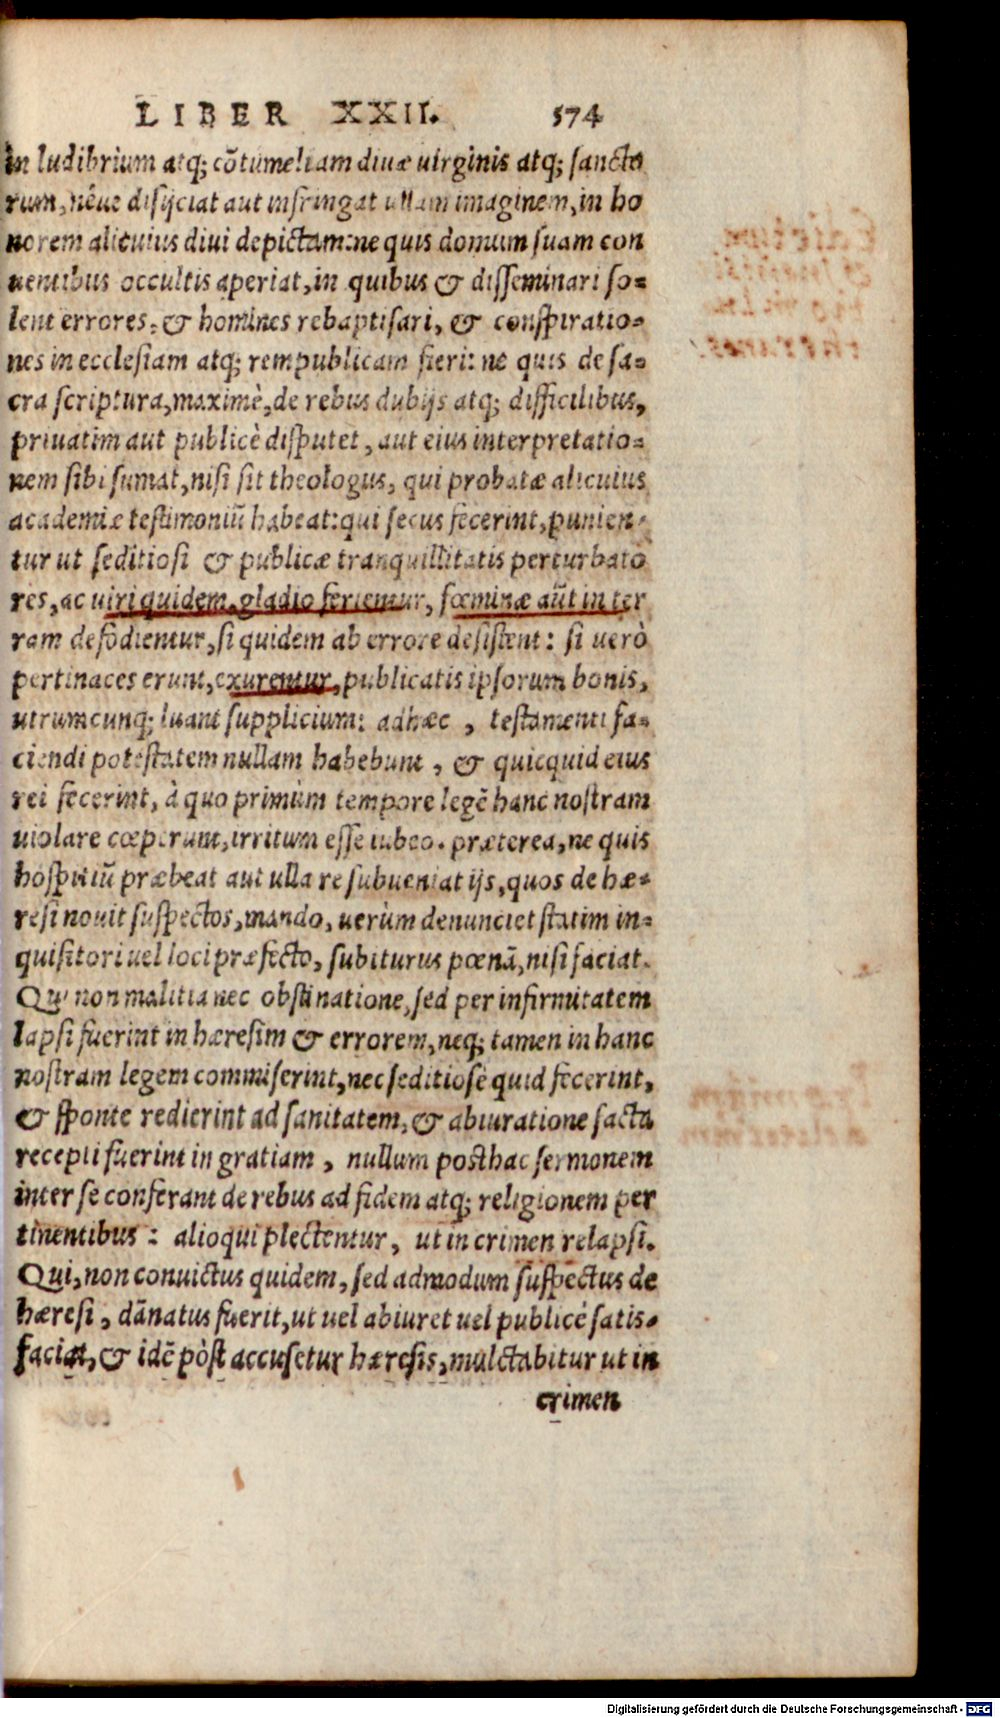 LIBER XXII. 574
in ludibrium atq; cõtumeliam diuæ uirginis atq; sancto
rum, nêue disijciat aut infringat ullam imaginem, in ho
norem alicuius diui depictam: ne quis domum suam con
uentibus occultis aperiat, in quibus & disseminari so-
lent errores, & homines rebaptisari, & conspiratio-
nes in ecclesiam atq; rempublicam fieri: ne quis de sa-
cra scriptura, maximè, de rebus dubijs atq; difficilibus,
priuatim aut publicè disputet, aut eius interpretatio-
nem sibi sumat, nisi sit theologus, qui probatæ alicuius
academiæ testimoniũ habeat: qui secus fecerint, punien-
tur ut seditiosi & publicæ tranquillitatis perturbato
res, ac uiri quidem, gladio ferientur, fœminæ aũt in ter
ram defodientur, si quidem ab errore desistent: si uerò
pertinaces erunt, exurentur, publicatis ipsorum bonis,
utrumcunq; luant supplicium: adhæc, testamenti fa-
ciendi potestatem nullam habebunt, & quicquid eius
rei fecerint, à quo primùm tempore legẽ hanc nostram
uiolare cœperunt, irritum esse iubeo. præterea, ne quis
hospitiũ præbeat aut ulla re subueniat ijs, quos de hæ-
resi nouit suspectos, mando, uerùm denunciet statim in-
quisitori uel loci præfecto, subiturus pœnã, nisi faciat.
Qui non malitia nec obstinatione, sed per infirmitatem
lapsi fuerint in hæresim & errorem, neq; tamen in hanc
nostram legem commiserint, nec seditiosè quid fecerint,
& sponte redierint ad sanitatem, & abiuratione facta
recepti fuerint in gratiam, nullum posthac sermonem
inter se conferant de rebus ad fidem atq; religionem per
tinentibus: alioqui plectentur, ut in crimen relapsi.
Qui, non conuictus quidem, sed admodum suspectus de
hæresi, dãnatus fuerit, ut uel abiuret uel publicè satis-
faciat, & idẽ pòst accusetur hæresis, mulctabitur ut in
crimen
Digitalisierung gefördert durch die Deutsche Forschungsgemeinschaft - DFG